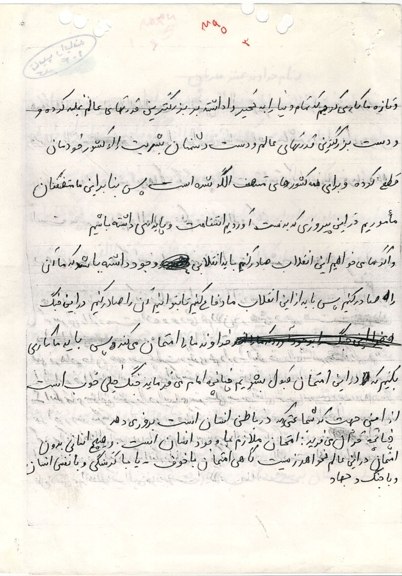 و تازه ما کاری کردیم که تمام دنیا را به تحیر واداشته بر بزرگترین قدرتهای عالم غلبه کرده و
و دست بزرگترین قدرتهای عالم و دست دشمنان بشریت را از کشور خودمان
قطع کرده و برای همه کشورهای مستضعف الگو شده است پس بنابراین ما متفقان
مأموریم در این پیروزی که بدست آوردیم استقامت و پایداری داشته باشیم
و اگر می‌خواهیم این انقلاب صادر کنیم باید انقلابی وجود داشته باشد که ما آن
را صادر کنیم پس باید از این انقلاب ما دفاع کنیم تا بتوانیم آن را صادر کنیم در این جنگ
خداوند ما را امتحان می‌کند و پس باید ما کاری
بکنیم که در این امتحان قبول بشویم چنانچه امام می‌فرماید جنگ خیلی خوب است
از این جهت که شجاعتی که در باطن انسان است بروز می‌دهد
چنانچه قرآن می‌فرماید: امتحان ملازم با وجود انسان است. و هیچ انسانی بدون
امتحان در این عالم نخواهد زیست گاهی امتحان با خوف - یا با گرسنگی و با نفس انسان
و با جنگ و جهاد